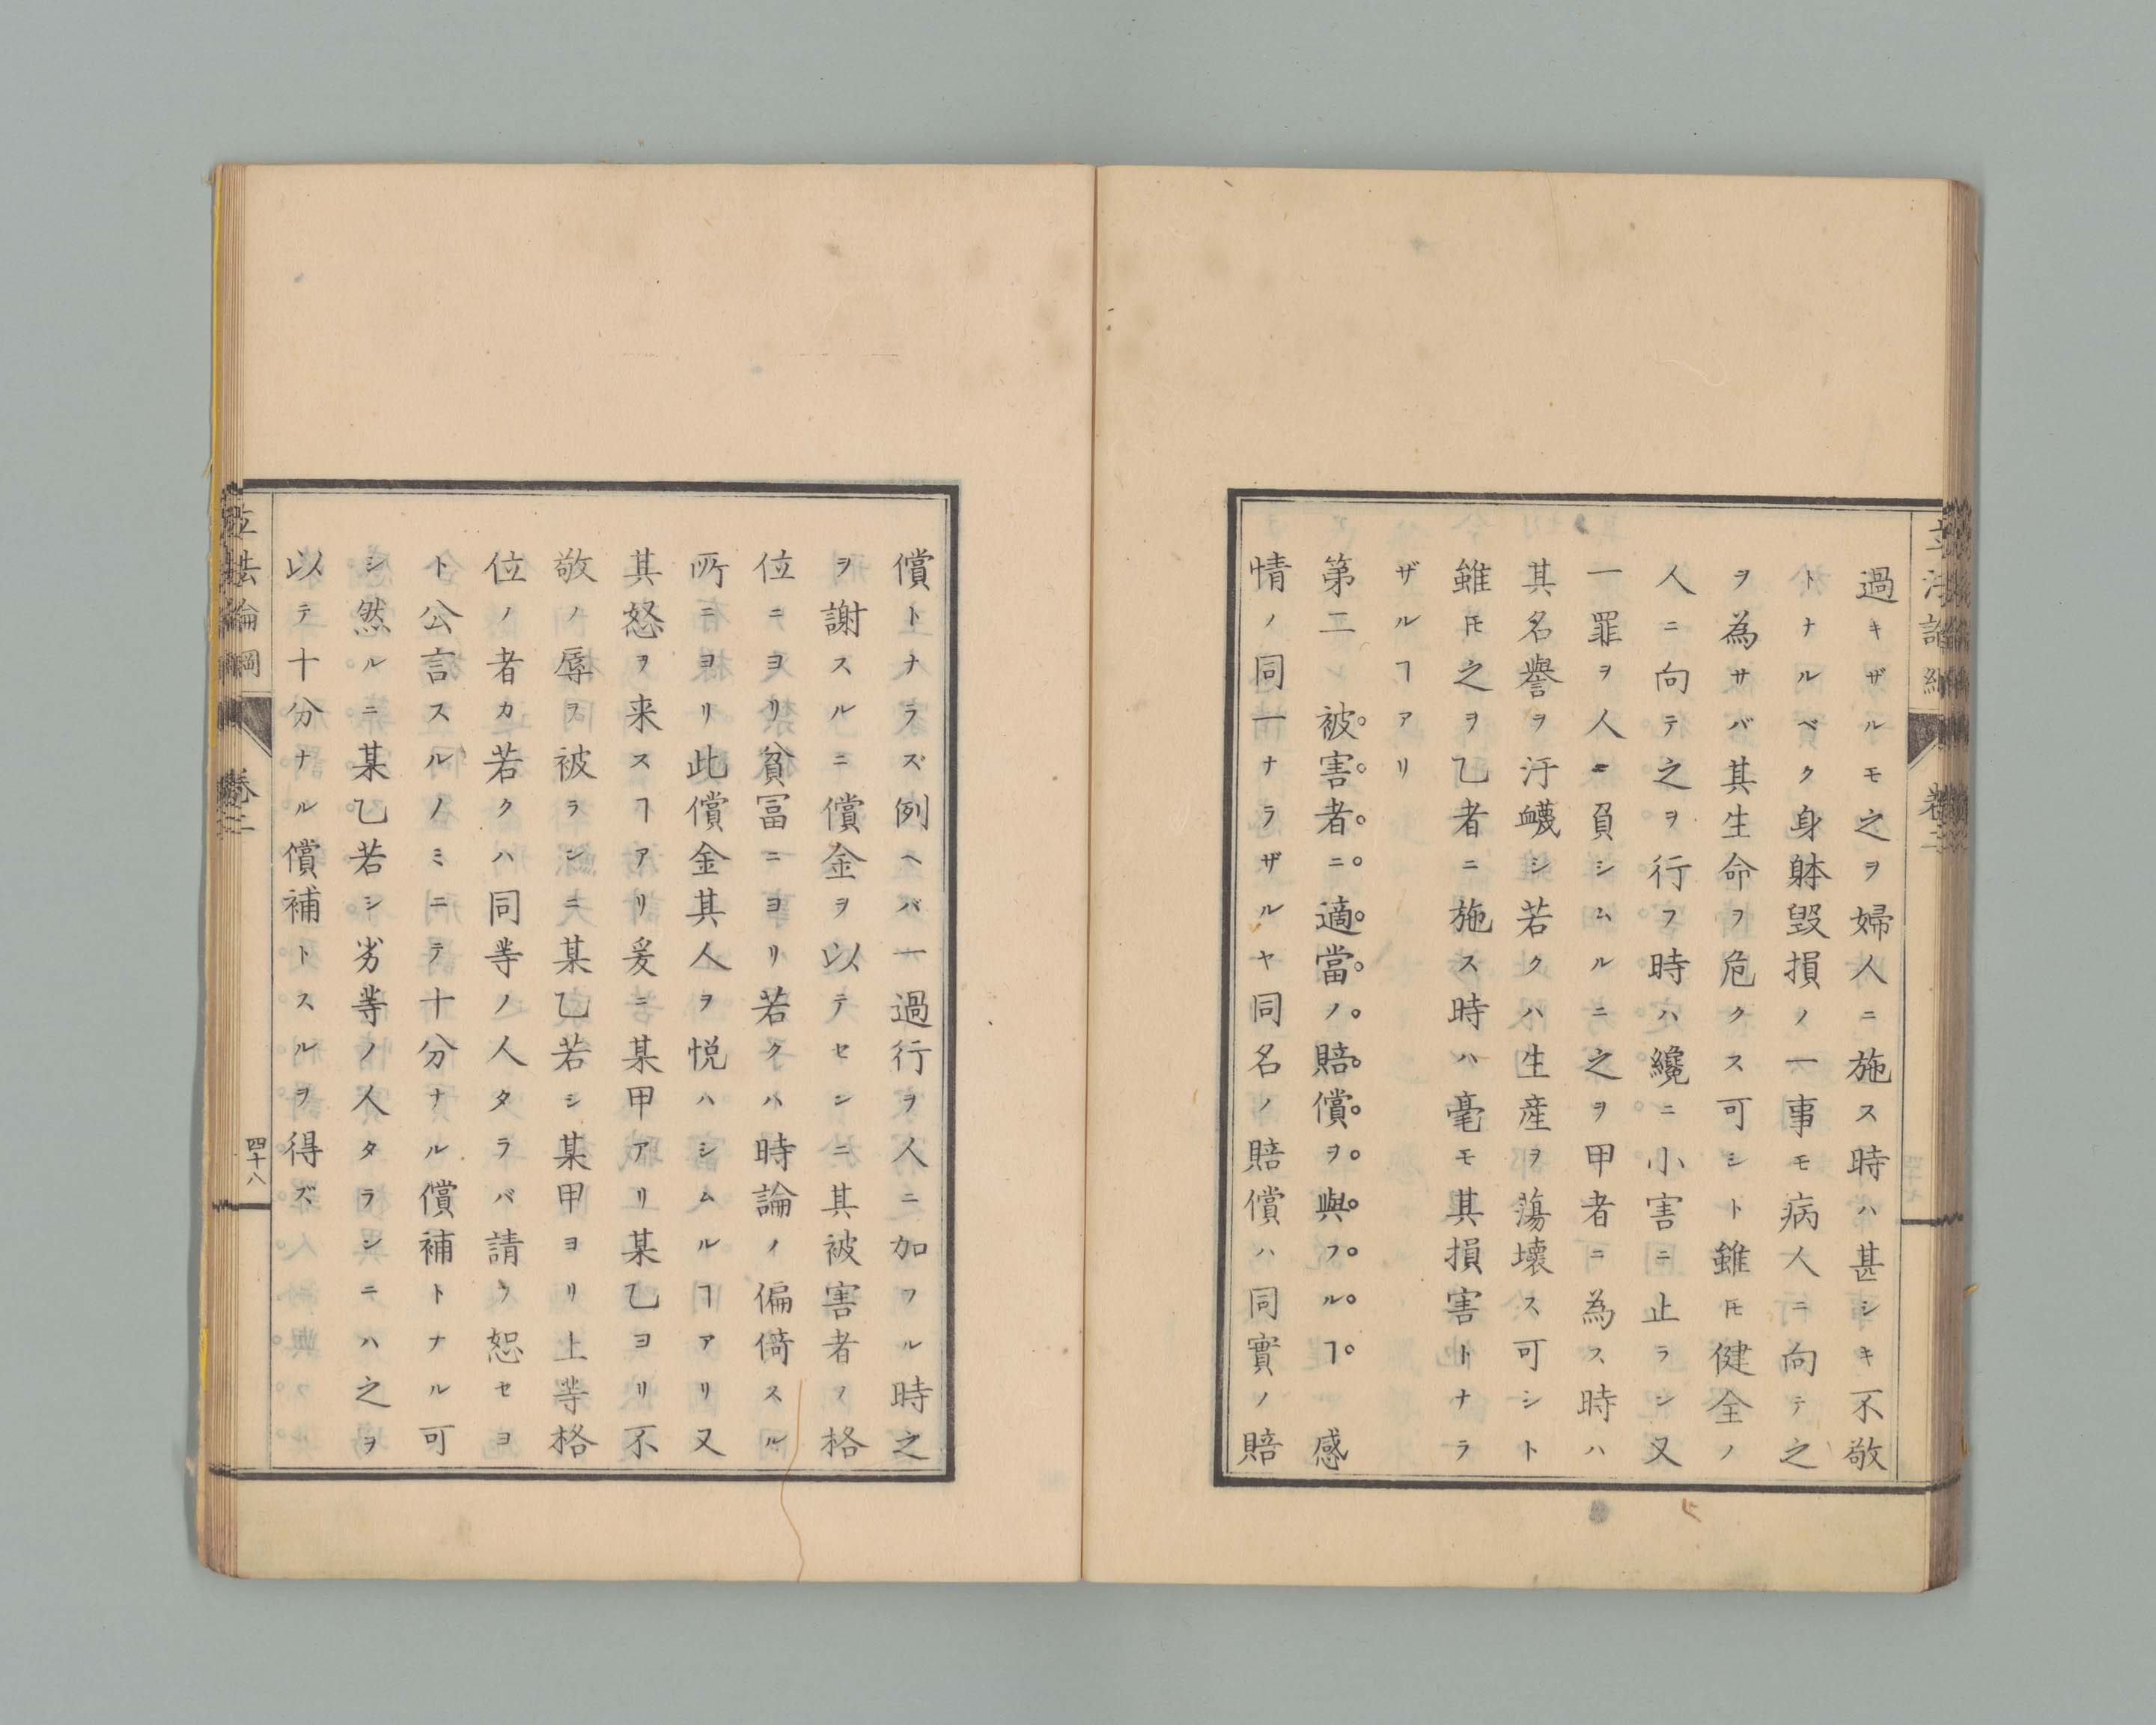 過キザルモ之ヲ婦人ニ施ス時ハ甚シキ不敬
トナルベク身躰毀損ノ一事モ病人ニ向テ之
ヲ為サバ其生命ヲ危クス可シト雖𪜈健全ノ
人ニ向テ之ヲ行フ時ハ纔ニ小害ニ止ラン又
一罪ヲ人ニ負シムルニ之ヲ甲者ニ為ス時ハ
其名譽ヲ汙衊シ若クハ生産ヲ蕩壊ス可シト
雖𪜈之ヲ乙者ニ施ス時ハ毫モ其損害トナラ
ザルヿアリ
第二 被害者ニ適當ノ賠償ヲ與フルヿ 感
情ノ同一ナラザルヤ同名ノ賠償ハ同實ノ賠
償トナラズ例ヘバ一過行ヲ人ニ加フル時之
ヲ謝スルニ償金ヲ以テセンニ其被害者ノ格
位ニヨリ貧冨ニヨリ若クハ時論ノ偏倚スル
所ニヨリ此償金其人ヲ悦ハシムルヿアリ又
其怒ヲ来スヿアリ爰ニ某甲アリ某乙ヨリ不
敬ノ辱ヲ被ランニ某乙若シ某甲ヨリ上等格
位ノ者カ若クハ同等ノ人タラバ請フ恕セヨ
ト公言スルノミニテ十分ナル償補トナル可
シ然ルニ某乙若シ劣等ノ人タラシニハ之ヲ
以テ十分ナル償補トスルヲ得ズ
立法論綱 巻二 四十八